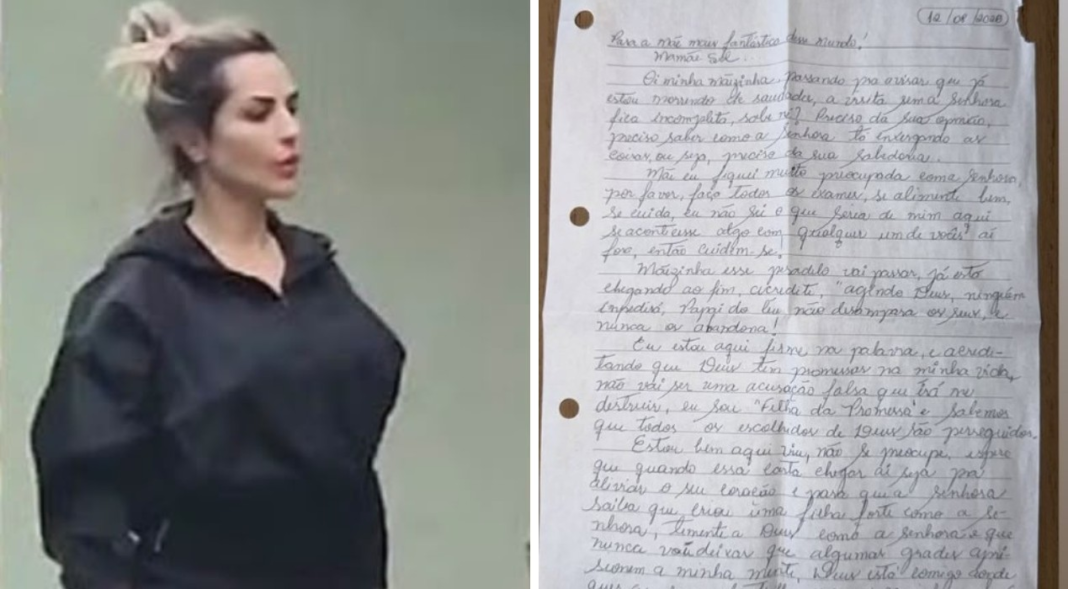 12/08/2026
Para a mãe mais fantástica desse mundo!
Mamãe Sol.
Oi minha mãizinha, passando pra avisar que já
estou morrendo de saudades, a visita sem a senhora
fica incompleta, sabe né? Preciso da sua opinião,
preciso saber como a senhora tá enxergando as
coisas, ou seja, preciso da sua sabedoria.
Mãe eu fiquei muito preocupada com a senhora,
por favor, faça todos os exames, se alimente bem,
se cuida, eu não sei o que seria de mim aqui
se acontecesse algo com qualquer um de vocês aí
fora, então cuidem-se.
Mãizinha esse pesadelo vai passar, já está
chegando ao fim, acredite, "agindo Deus, ninguém
impedirá, Papai do Céu não desampara os seus, e
nunca os abandona!
Eu estou aqui firme na palavra, e acredi-
tando que Deus tem promessas na minha vida,
não vai ser uma acusação falsa que irá me
destruir, eu sou "Filha da Promessa" e sabemos
que todos os escolhidos de Deus são perseguidos.
Estou bem aqui viu, não se preocupe, espero
que quando essa carta chegar aí seja pra
aliviar o seu coração e para que a senhora
saiba que criou uma filha forte como a se-
nhora, temente a Deus como a senhora e que
nunca vai deixar que algumas grades apri-
sionem a minha mente, Deus está comigo desde
que